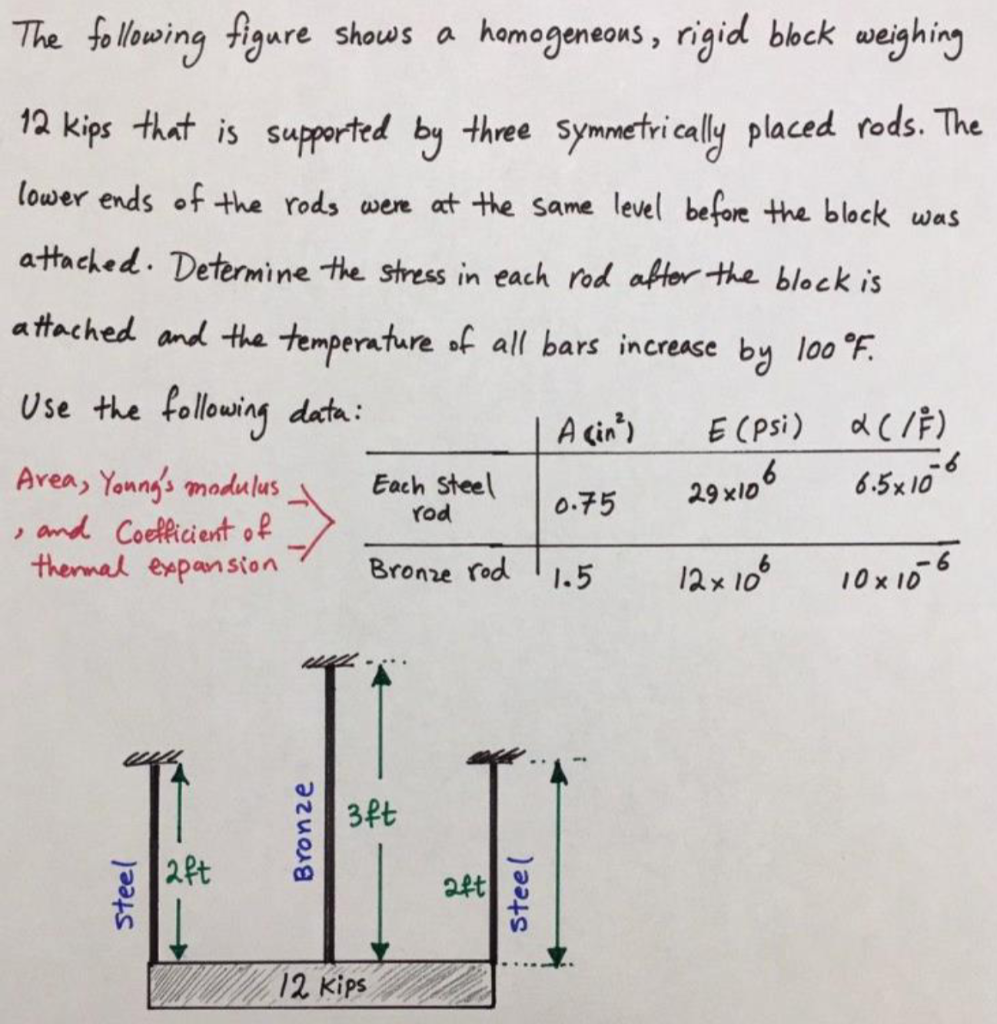 The following figure shows a homogeneous, rigid block weighing
12 kips that is supported by three symmetrically placed rods. The
lower ends of the rods were at the same level before the block was
attached. Determine the stress in each rod after the block is
attached and the temperature of all bars increase by 100 °F.
Use the following data:
A (in²) E (psi) α (/°F)
Area, Young's modulus
, and Coefficient of
thermal expansion
Each Steel
rod
0.75 29×10⁶ 6.5×10⁻⁶
Bronze rod 1.5 12×10⁶ 10×10⁻⁶
Steel
2ft
Bronze
3ft
2ft
Steel
12 kips